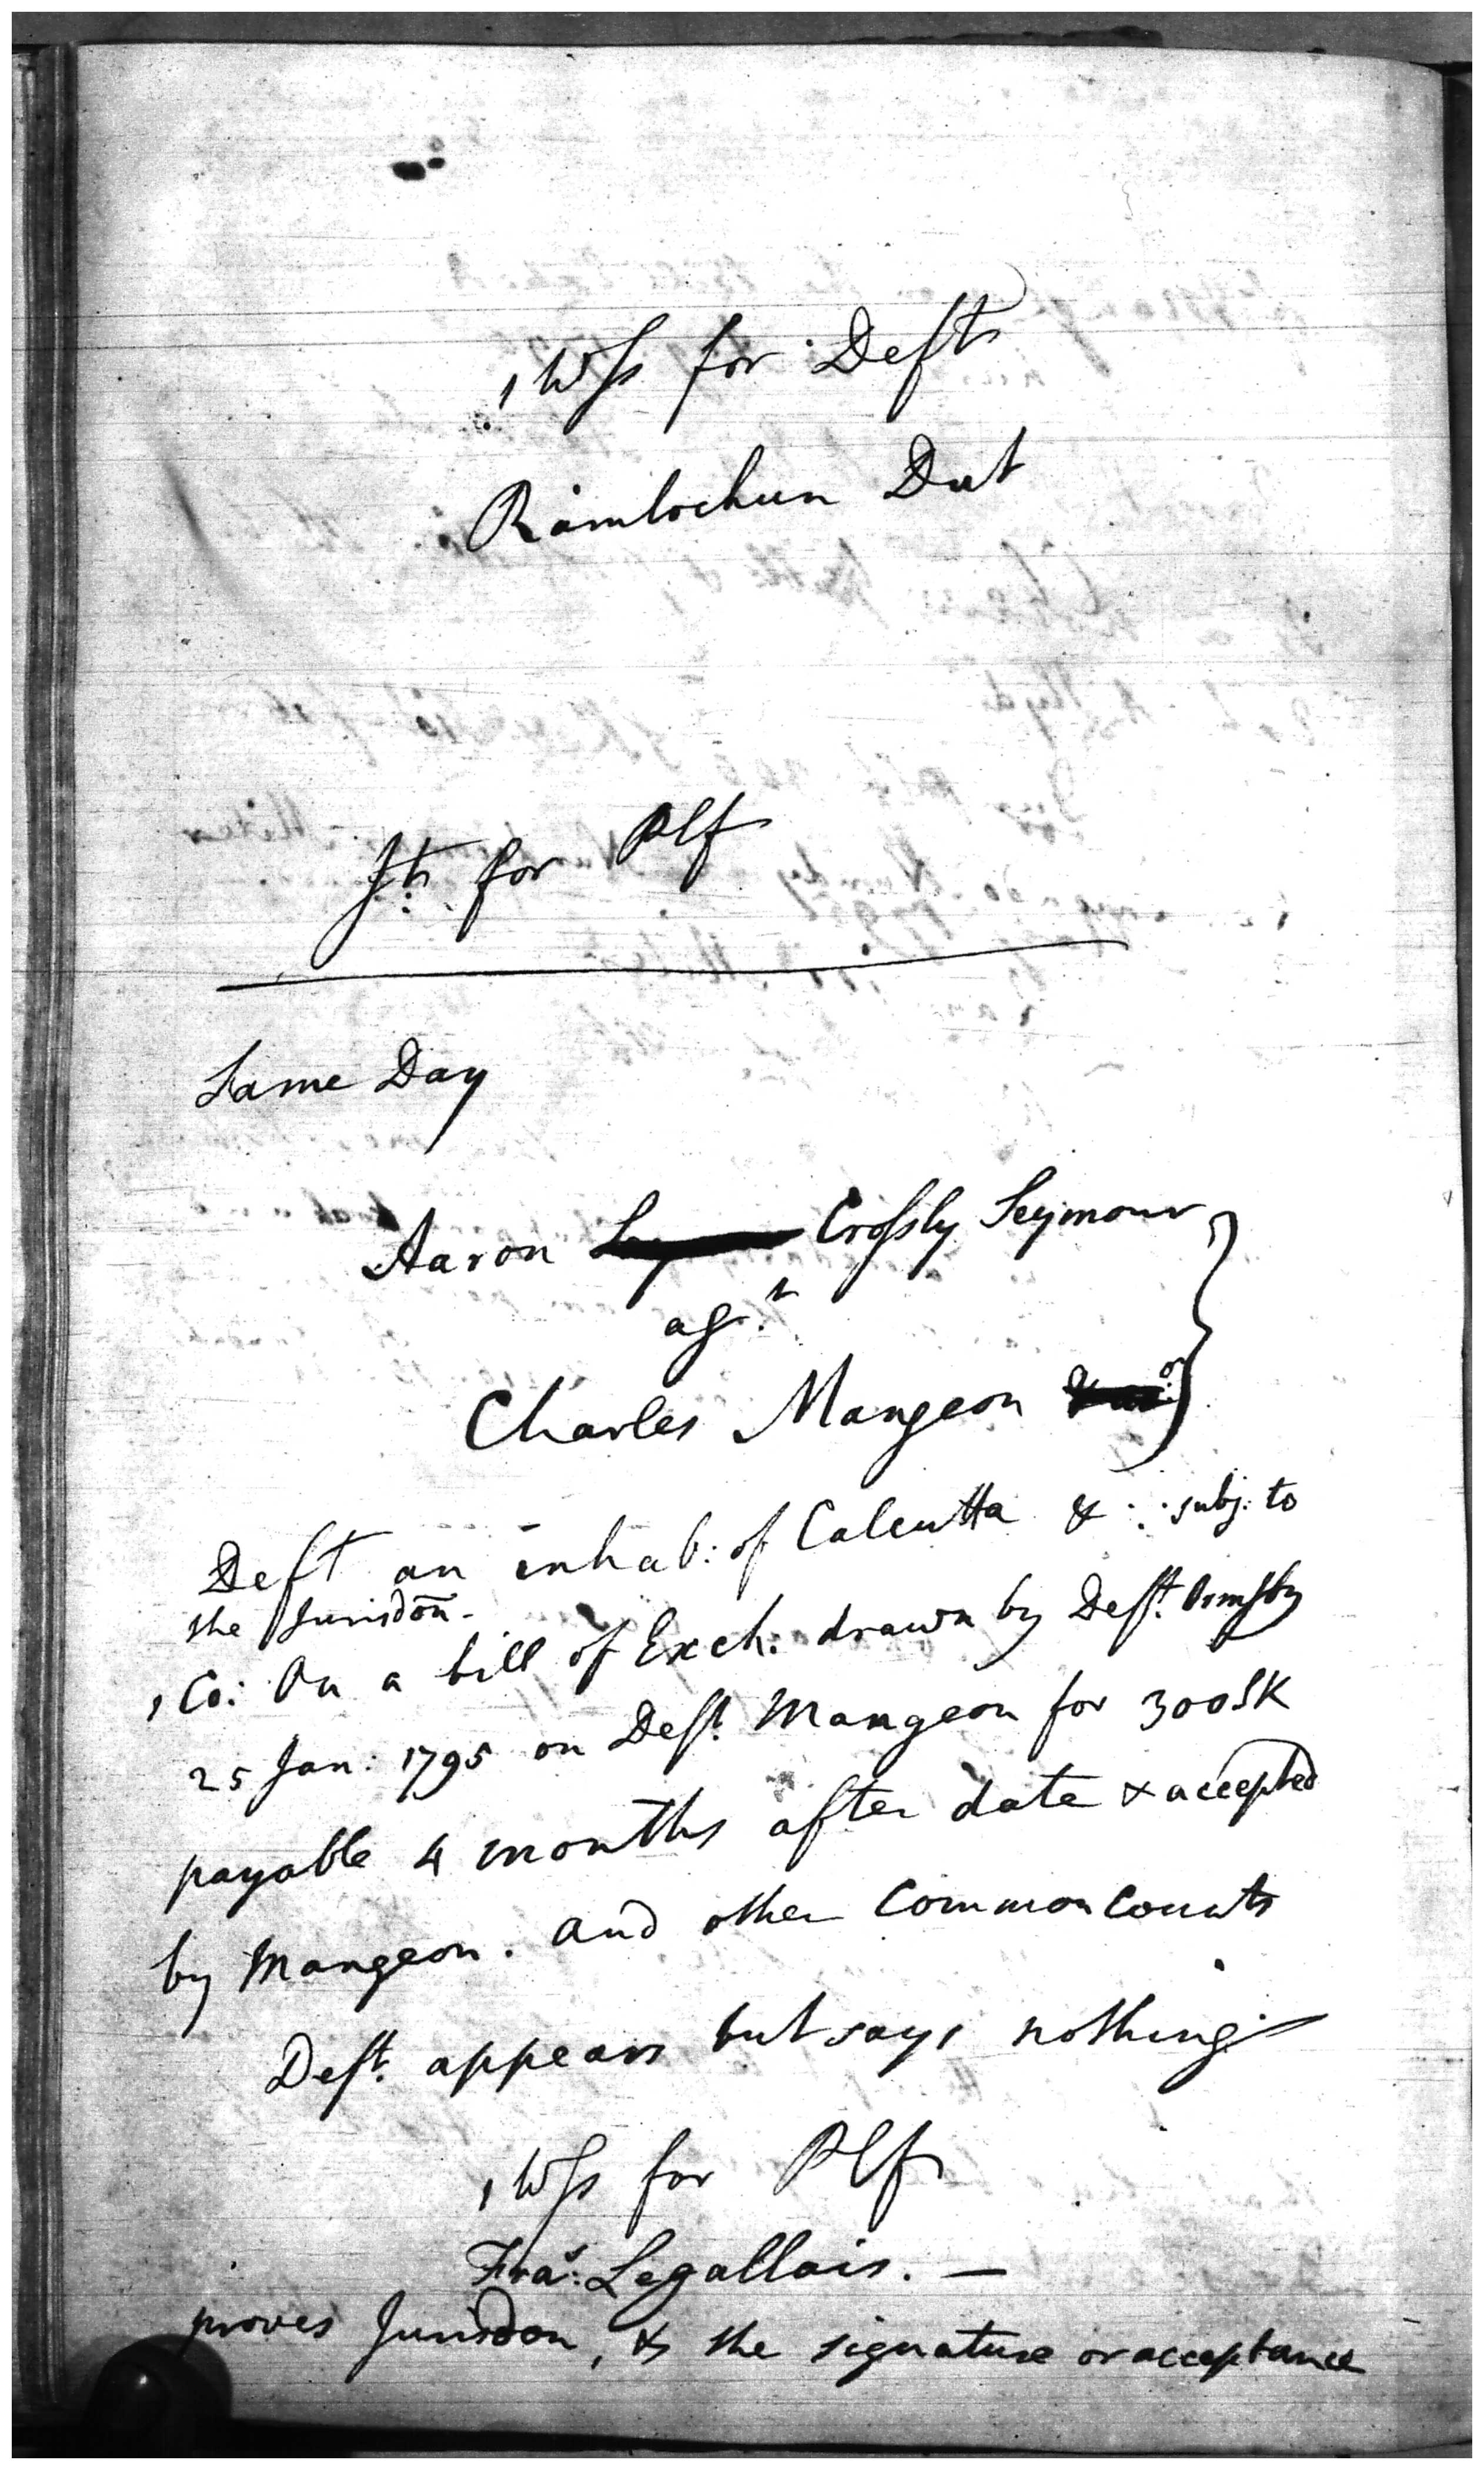 1 Wss for Deft
Rāmlochun Dut
Jt. for Plf
Same Day
Aaron Crossly Seymour
agt
Charles Mangeon
Deft an inhab: of Calcutta & ∴ subj: to
the Jurisdōn.
1 Co: On a bill of Exch: drawn by Deft. Ormsby
25 Jan: 1795 on Deft. Mangeon for 300 SR
payable 4 months after date & accepted
by Mangeon. and other Common Counts
Deft. appears but says nothing
1 Wss for Plf
Fras: Legallais. —
proves Jurisdon, & the signature or acceptance